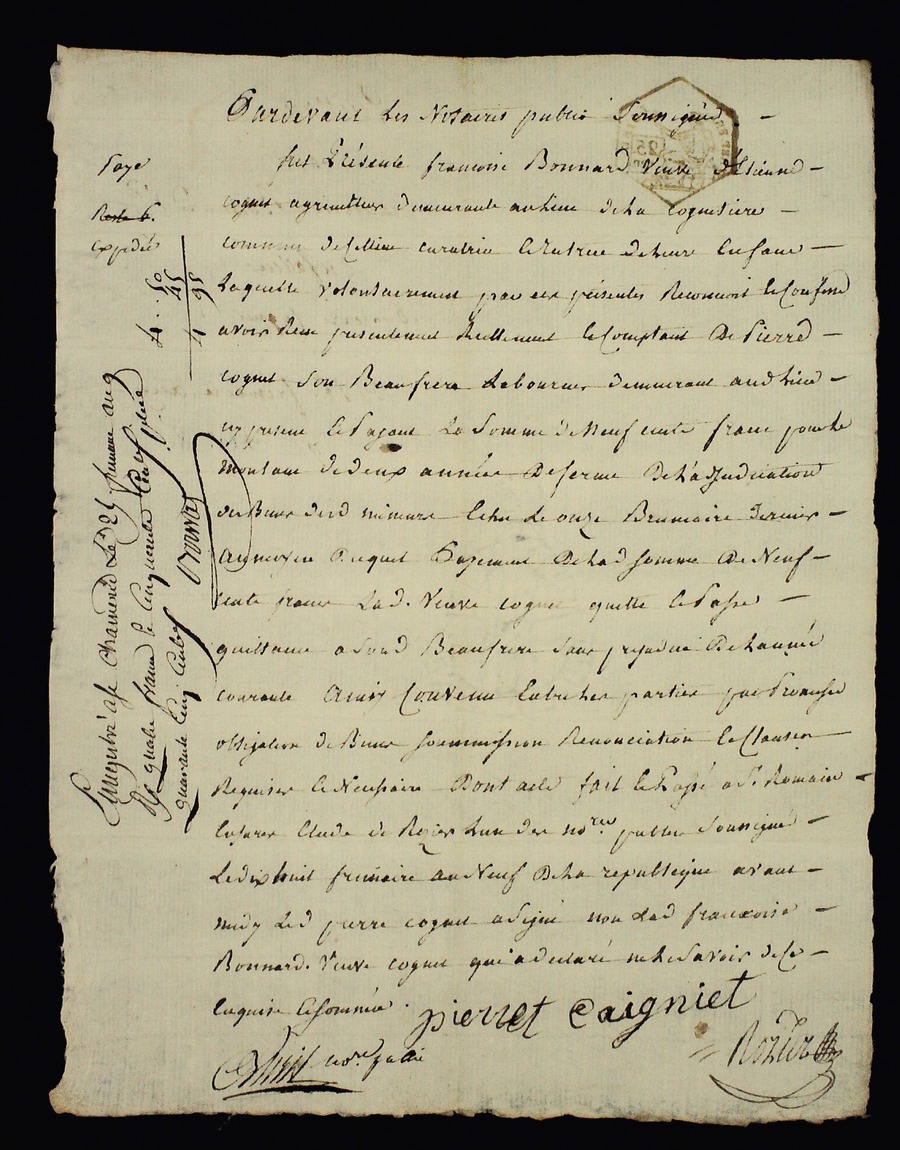 Pardevant Les Notaires public Soussignés
fut Présente francoise Bonnard Veuve d'Etienne
cognet agriculteur demeurante au lieu de La Cognetiere
commune de Cellieu curatrice & tutrice de leurs Enfans
Laquelle volontairement par ces présentes Reconnoit & Confesse
avoir Reçu presentement Reellement & Comptant De Pierre
cognet Son Beaufrere Laboureur demeurant aud Lieu
icy présent & Payant La Somme de Neuf cents francs pour le
montant de deux années De ferme De L'adjudication
des Biens desd mineurs Echu Le onze Brumaire dernier
au moyen duquel Payement De Lad somme De Neuf
cents francs Lad. Veuve cognet quitte & Passe
quittance a Sond Beaufrere Sans prejudice De L'année
courante Ainsy Convenu Entre Les parties par Promesse
obligation de Biens Soummission Renonciation & Clauses
Requises & Necessaire Dont acte fait & Passé a St Romain
En Jarez Etude de Rozier L'un des nores publics Soussignés
Le dix huit frimaire an Neuf De La republique avant
midy Led pierre cognet a Signé non Lad francoise
Bonnard. Veuve cognet qui a declaré ne le Savoir de Ce
Enquise & Sommée.
pierret Caigniet
nore public
Rozier
Paye
Reste 6.
Expedié
4. 50
45
4 95
Enregistré a St Chamond Le 25 frimaire an 9
R quatre francs & cinquante Centimes
quarante Cinq Centes